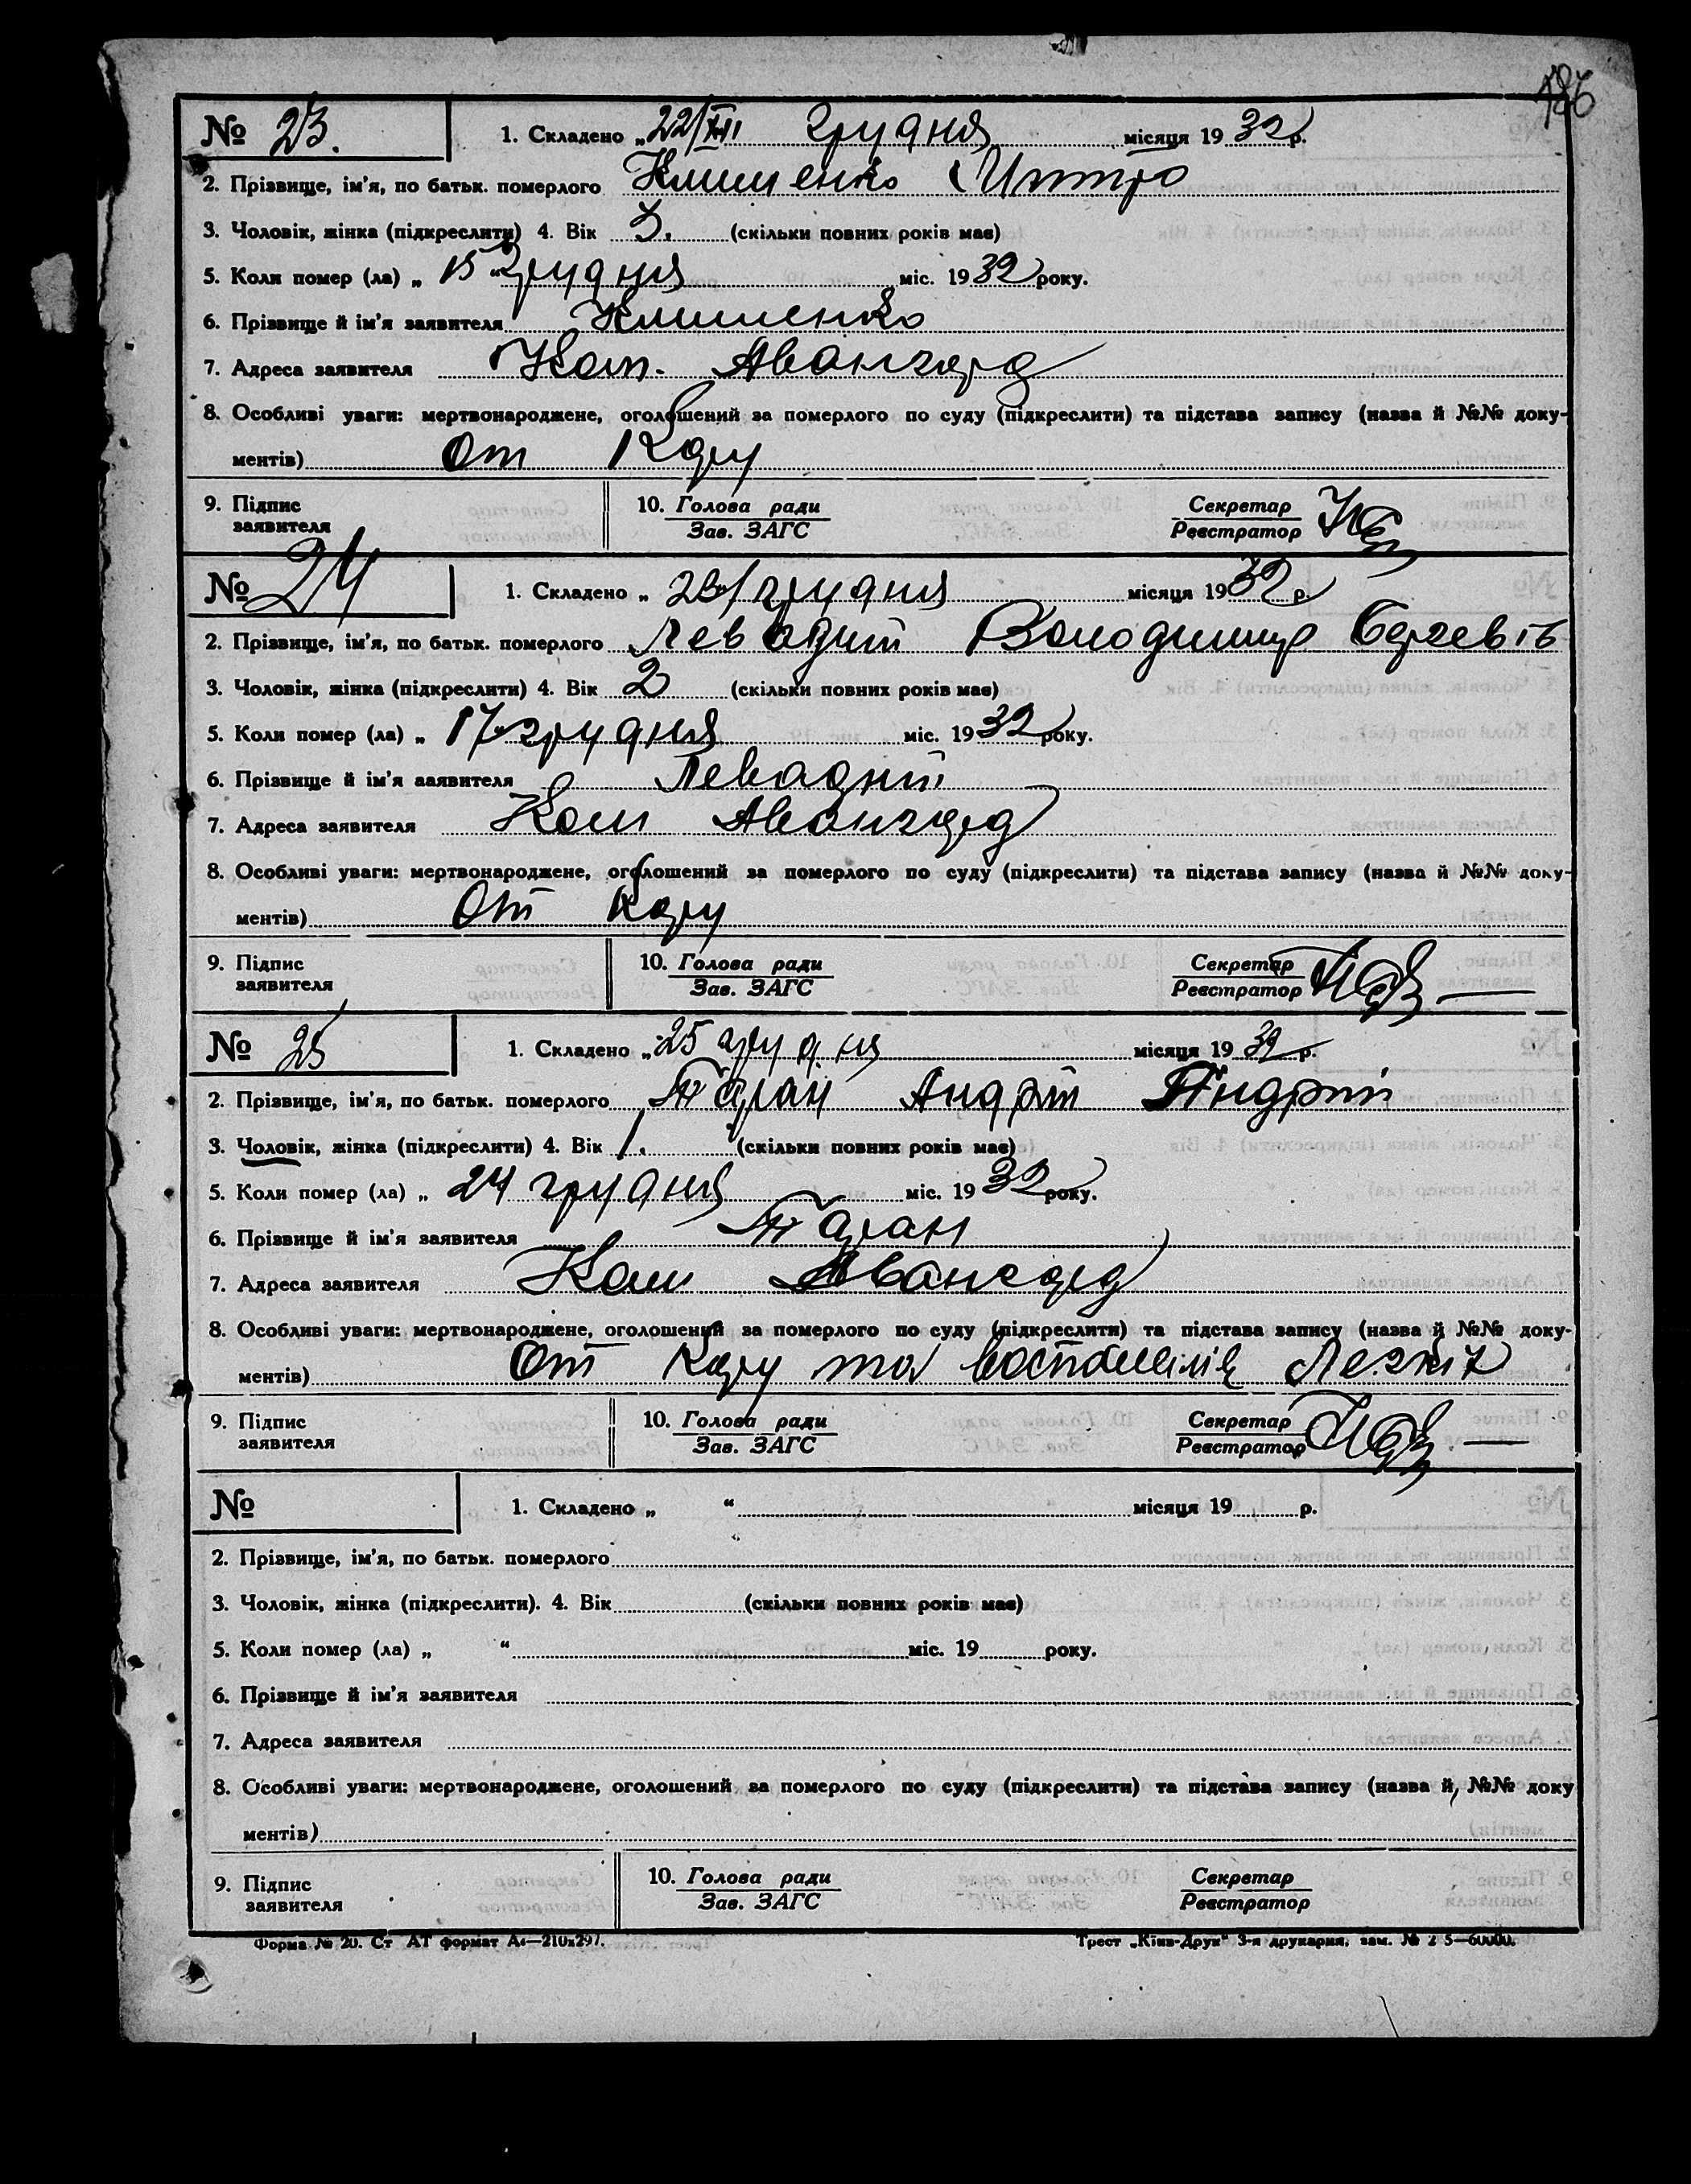 186
№ 23. 1. Складено „22/XII грудня місяця 1932 р.
2. Прізвище, ім'я, по батьк. померлого Клименко Митро
3. Чоловік, жінка (підкреслити) 4. Вік 3. (скільки повних років має)
5. Коли помер (ла) „ 15 “ грудня міс. 1932 року.
6. Прізвище й ім'я заявителя Клименко
7. Адреса заявителя Ком. Авангард
8. Особливі уваги: мертвонароджене, оголошений за померлого по суду (підкреслити) та підстава запису (назва й №№ доку-
ментів) От Кору
9. Підпис заявителя 10. Голова ради Секретар
Зав. ЗАГС Реєстратор
№ 24 1. Складено „ 23/грудня місяця 1932 р.
2. Прізвище, ім'я, по батьк. померлого Левадний Володимир Сергевів
3. Чоловік, жінка (підкреслити) 4. Вік 2 (скільки повних років має)
5. Коли помер (ла) „ 17 грудня міс. 1932 року.
6. Прізвище й ім'я заявителя Левадний
7. Адреса заявителя Ком Авангард
8. Особливі уваги: мертвонароджене, оголошений за померлого по суду (підкреслити) та підстава запису (назва й №№ доку-
ментів) От Кору
9. Підпис заявителя 10. Голова ради Секретар
Зав. ЗАГС Реєстратор
№ 25 1. Складено „25 грудня місяця 1932 р.
2. Прізвище, ім'я, по батьк. померлого Таран Андрій Андрій
3. Чоловік, жінка (підкреслити) 4. Вік 1. (скільки повних років має)
5. Коли помер (ла) „ 24 грудня міс. 1932 року.
6. Прізвище й ім'я заявителя Таран
7. Адреса заявителя Ком Авангард
8. Особливі уваги: мертвонароджене, оголошений за померлого по суду (підкреслити) та підстава запису (назва й №№ доку-
ментів) От Кору та Легких
9. Підпис заявителя 10. Голова ради Секретар
Зав. ЗАГС Реєстратор
№ 1. Складено „ “ місяця 19 р.
2. Прізвище, ім'я, по батьк. померлого
3. Чоловік, жінка (підкреслити). 4. Вік (скільки повних років має)
5. Коли помер (ла) „ “ міс. 19 року.
6. Прізвище й ім'я заявителя
7. Адреса заявителя
8. Особливі уваги: мертвонароджене, оголошений за померлого по суду (підкреслити) та підстава запису (назва й №№ доку
ментів)
9. Підпис заявителя 10. Голова ради Секретар
Зав. ЗАГС Реєстратор
Форма № 20. Ст АТ формат А4—210x297. Трест „Київ-Друк“ 3-я друкарня, зам. №